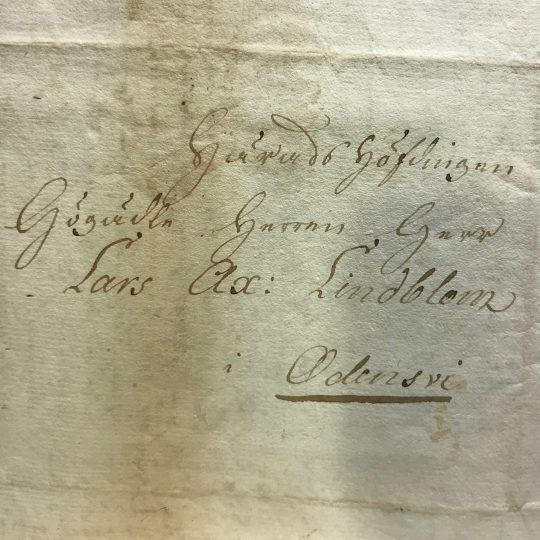 Härads Höfdingen
Högädle Herren Herr
Lars Ax: Lindblom
i Odensvi